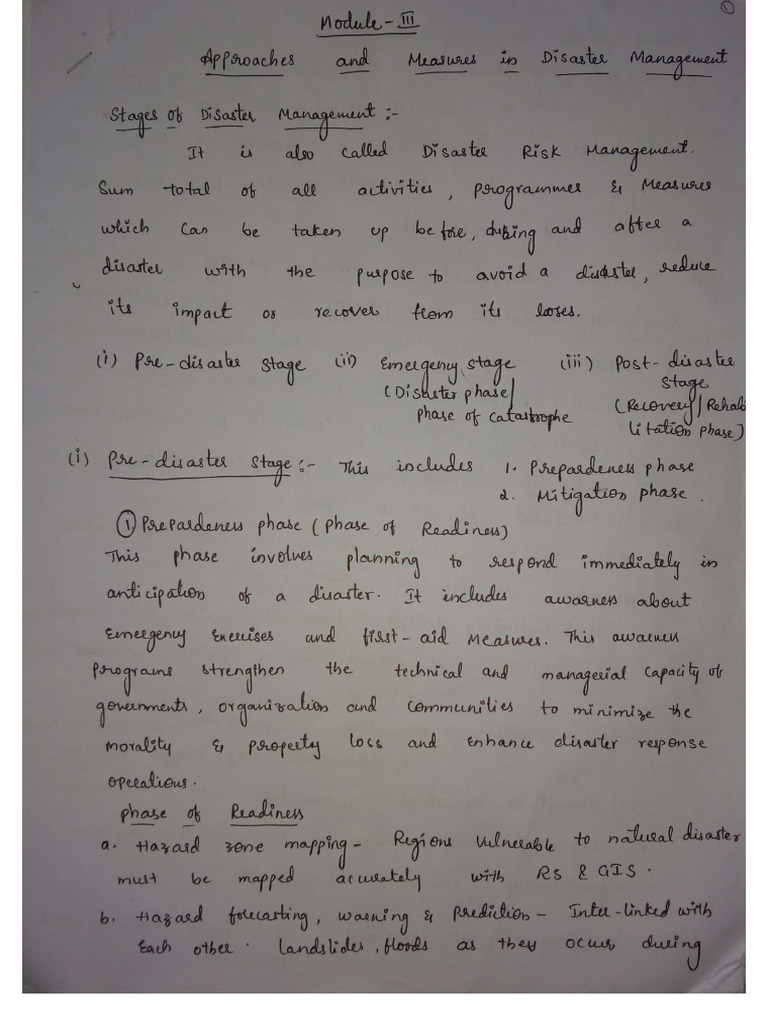 1
Module - III
Approaches and Measures in Disaster Management
Stages of Disaster Management :-
It is also called Disaster Risk Management.
Sum total of all activities, programmes & Measures
which can be taken up before, during and after a
disaster with the purpose to avoid a disaster, reduce
its impact or recover from its loses.
(i) Pre-disaster Stage (ii) Emergency stage (iii) Post-disaster
Stage
(Disaster phase/
phase of catastrophe
(Recovery/Rehabi
litation phase)
(i) Pre-disaster Stage :- This includes 1. Prepardeness phase
2. Mitigation phase.
① Prepardeness phase (Phase of Readiness)
This phase involves planning to respond immediately in
anticipation of a disaster. It includes awarness about
Emergency Exercises and first-aid Measures. This awarness
programs strengthen the technical and managerial capacity of
governments, organization and communities to minimize the
morality & property loss and enhance disaster response
operations.
phase of Readiness
a. Hazard zone mapping - Regions vulnerable to natural disaster
must be mapped accurately with RS & GIS.
b. Hazard forecasting, warning & Prediction - Inter-linked with
Each other. Landslides, floods as they occur during